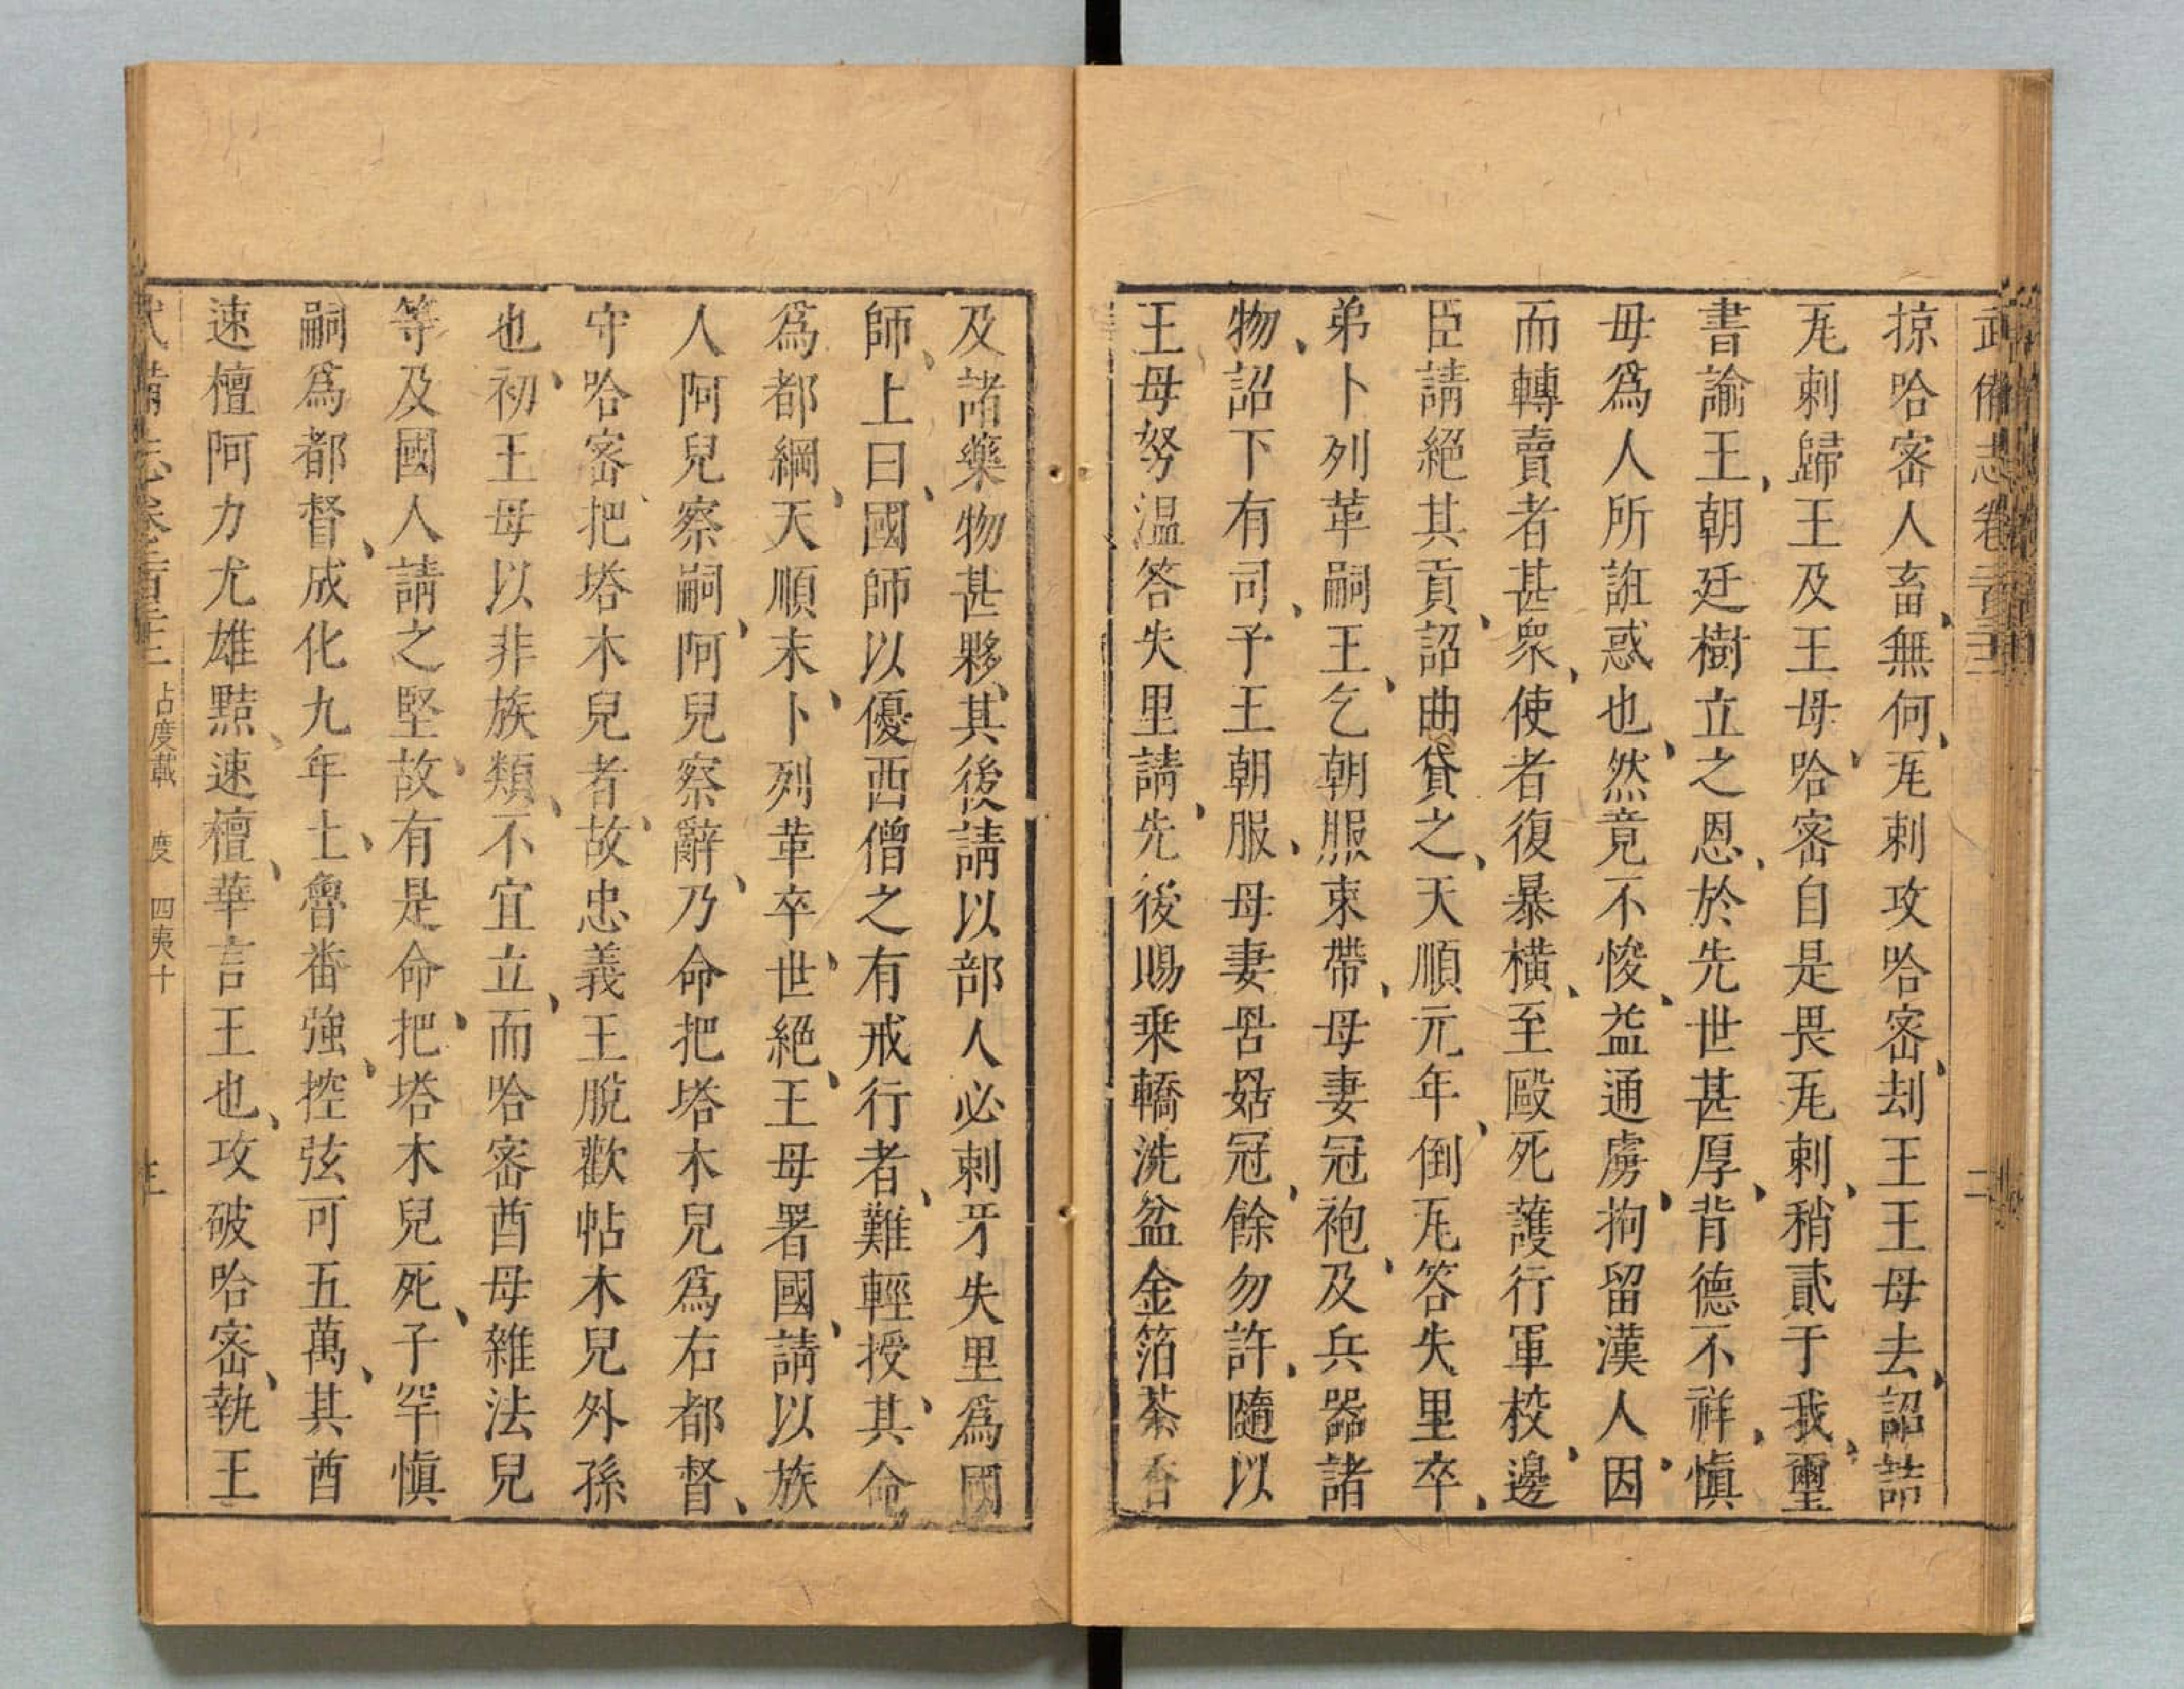 武備志卷二百二十三 二
掠哈密人畜、無何、瓦剌攻哈密、刦王王母去、詔詰
瓦剌歸王及王母、哈密自是畏瓦剌、稍貳于我、璽
書諭王、朝廷樹立之恩、於先世甚厚、背德不祥、慎
毋爲人所誑惑也、然竟不悛、益通虜、拘留漢人、因
而轉賣者甚衆、使者復暴橫、至毆死護行軍校、邊
臣請絕其貢、詔曲貸之、天順元年、倒瓦答失里卒、
弟卜列革嗣王、乞朝服束帶、母妻冠袍、及兵器諸
物、詔下有司、予王朝服、母妻罟姑冠、餘勿許、隨以
王母努溫答失里請、先後賜乗轎洗盆金箔茶香
及諸藥物甚夥、其後請以部人必剌牙失里爲國
師、上曰、國師以優西僧之有戒行者、難輕授、其命
爲都綱、天順末、卜列革卒、世絕、王母署國、請以族
人阿兒察嗣、阿兒察辭、乃命把塔木兒爲右都督、
守哈密、把塔木兒者、故忠義王脫歡帖木兒外孫
也、初、王母以非族類、不宜立、而哈密酋母雜法兒
等及國人請之堅、故有是命、把塔木兒死、子罕慎
嗣爲都督、成化九年、土魯番強、控弦可五萬、其酋
速檀阿力尤雄黠、速檀、華言王也、攻破哈密、執王
占度載 度 四夷十